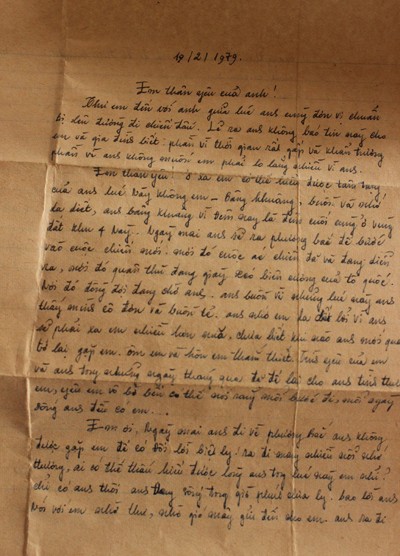 19/2/1979.
Em thân yêu của anh!...
Thư em đến với anh giữa lúc anh cùng đơn vị chuẩn
bị lên đường đi chiến đấu. Lẽ ra anh không báo tin này cho
em và gia đình biết. phần vì thời gian rất gấp và khẩn trương
phần vì anh không muốn em phải lo lắng nhiều vì anh.
Em thân yêu! ở xa em có thể hiểu được tâm trạng
của anh lúc này không em - Bâng khuâng, buồn và nhớ
da diết, anh bâng khuâng vì đêm nay là đêm cuối cùng ở vùng
đất khu 4 này. Ngày mai anh sẽ ra phương bắc để bước
vào cuộc chiến mới. nơi đó cuộc ác chiến đã và đang diễn
ra, nơi đó quân thù đang giày xéo biên cương của tổ quốc.
Nơi đó đồng đội đang chờ anh. anh buồn vì những lúc này anh
thấy mình cô đơn và buồn tẻ. anh nhớ em da diết bởi vì anh
sẽ phải xa em nhiều hơn nữa, chưa biết khi nào anh mới quay
trở lại gặp em. ôm em và hôn em tha thiết. Tình yêu của em
và anh trong những ngày tháng qua đã để lại cho anh tình thương
em, yêu em vô bờ bến có thể nói rằng mỗi bước đi, mỗi ngày
sống anh đều có em...
Em ơi, Ngày mai anh đi về phương bắc anh không
được gặp em để có đôi lời biệt ly. ra đi mang nhiều nỗi nhớ
thương, ai có thể thấu hiểu được lòng anh trong lúc này em nhỉ?
chỉ có anh thôi anh đang trong giờ phút chia ly. bao lời anh
nói với em như thế, nhờ gió mây gửi đến cho em. anh ra đi